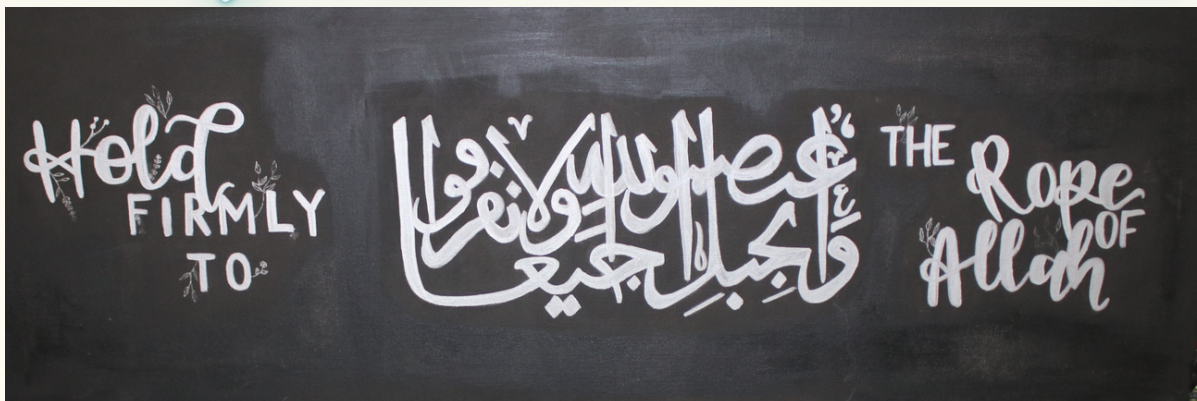 Hold
FIRMLY
TO
واعتصموا بحبل الله جميعا ولا تفرقوا
THE
Rope
OF
Allah